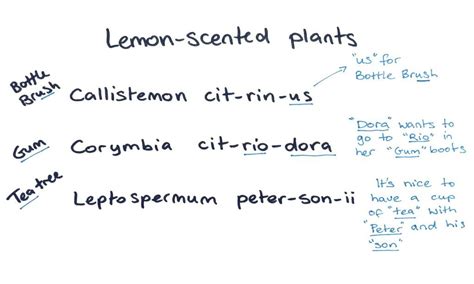 Lemon-scented plants
Bottle
Brush
Callistemon cit-rin-us
"us" for
Bottle Brush
Gum
Corymbia cit-rio-dora
"Dora" wants to
go to "Rio" in
her "Gum" boots
Tea tree
Leptospermum peter-son-ii
It's nice to
have a cup
of "tea" with
"Peter" and his
"son"